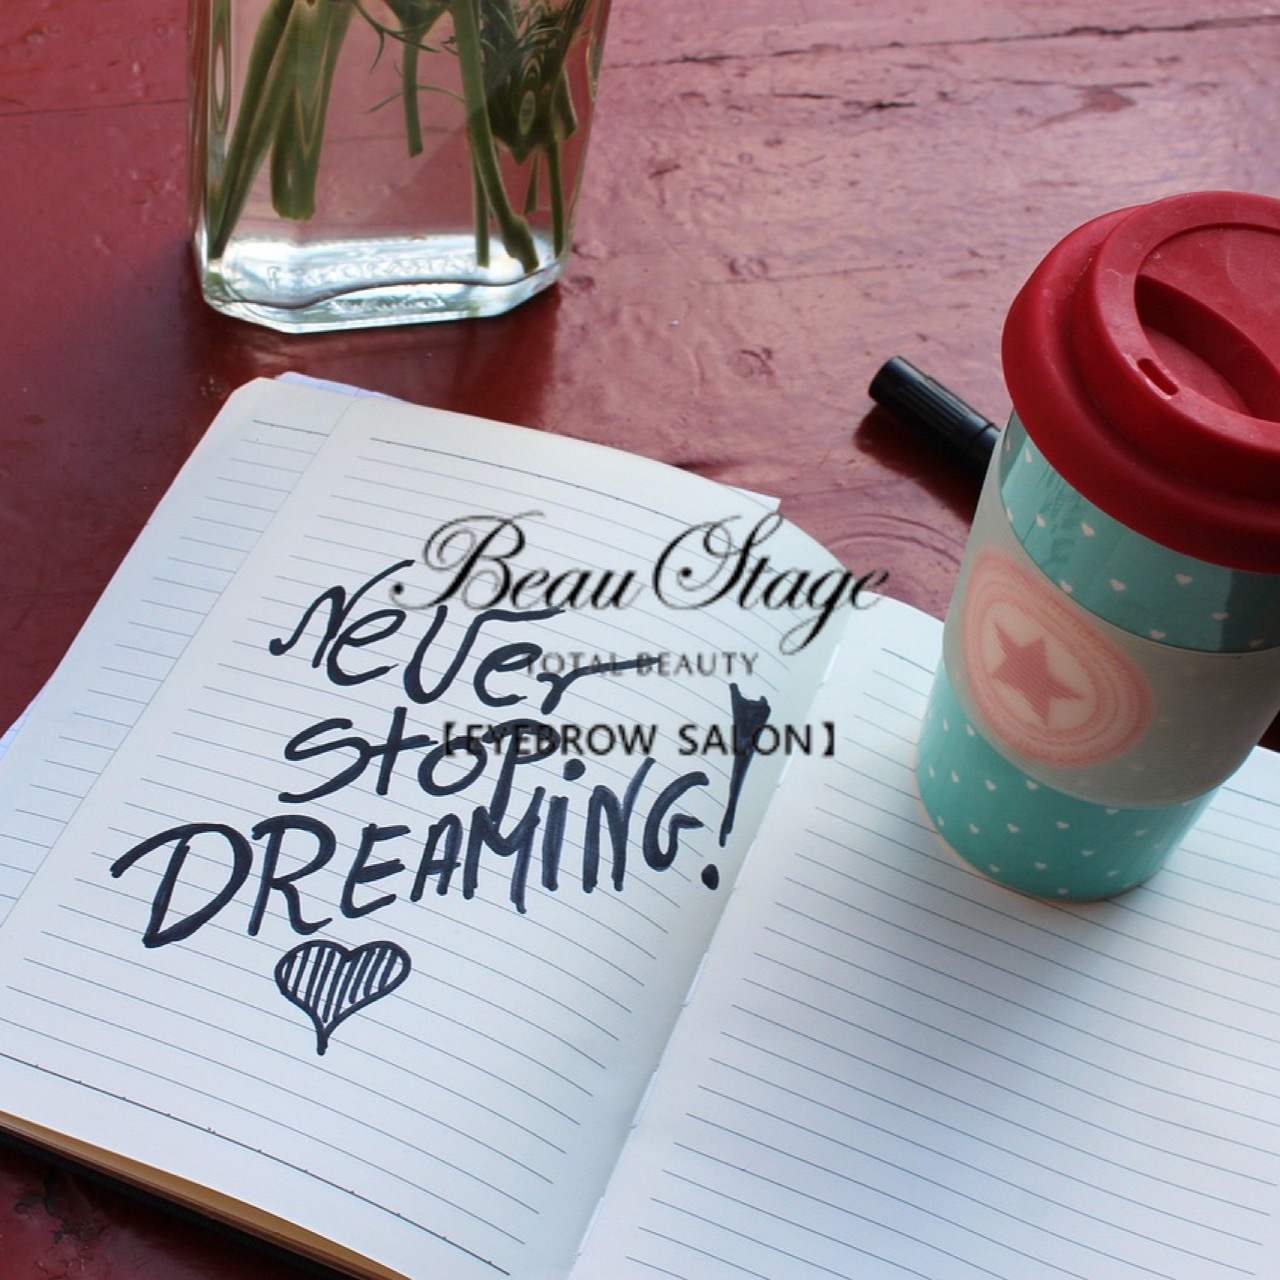 Beau Stage
TOTAL BEAUTY
【EYEBROW SALON】
Never
stop
DREAMING!